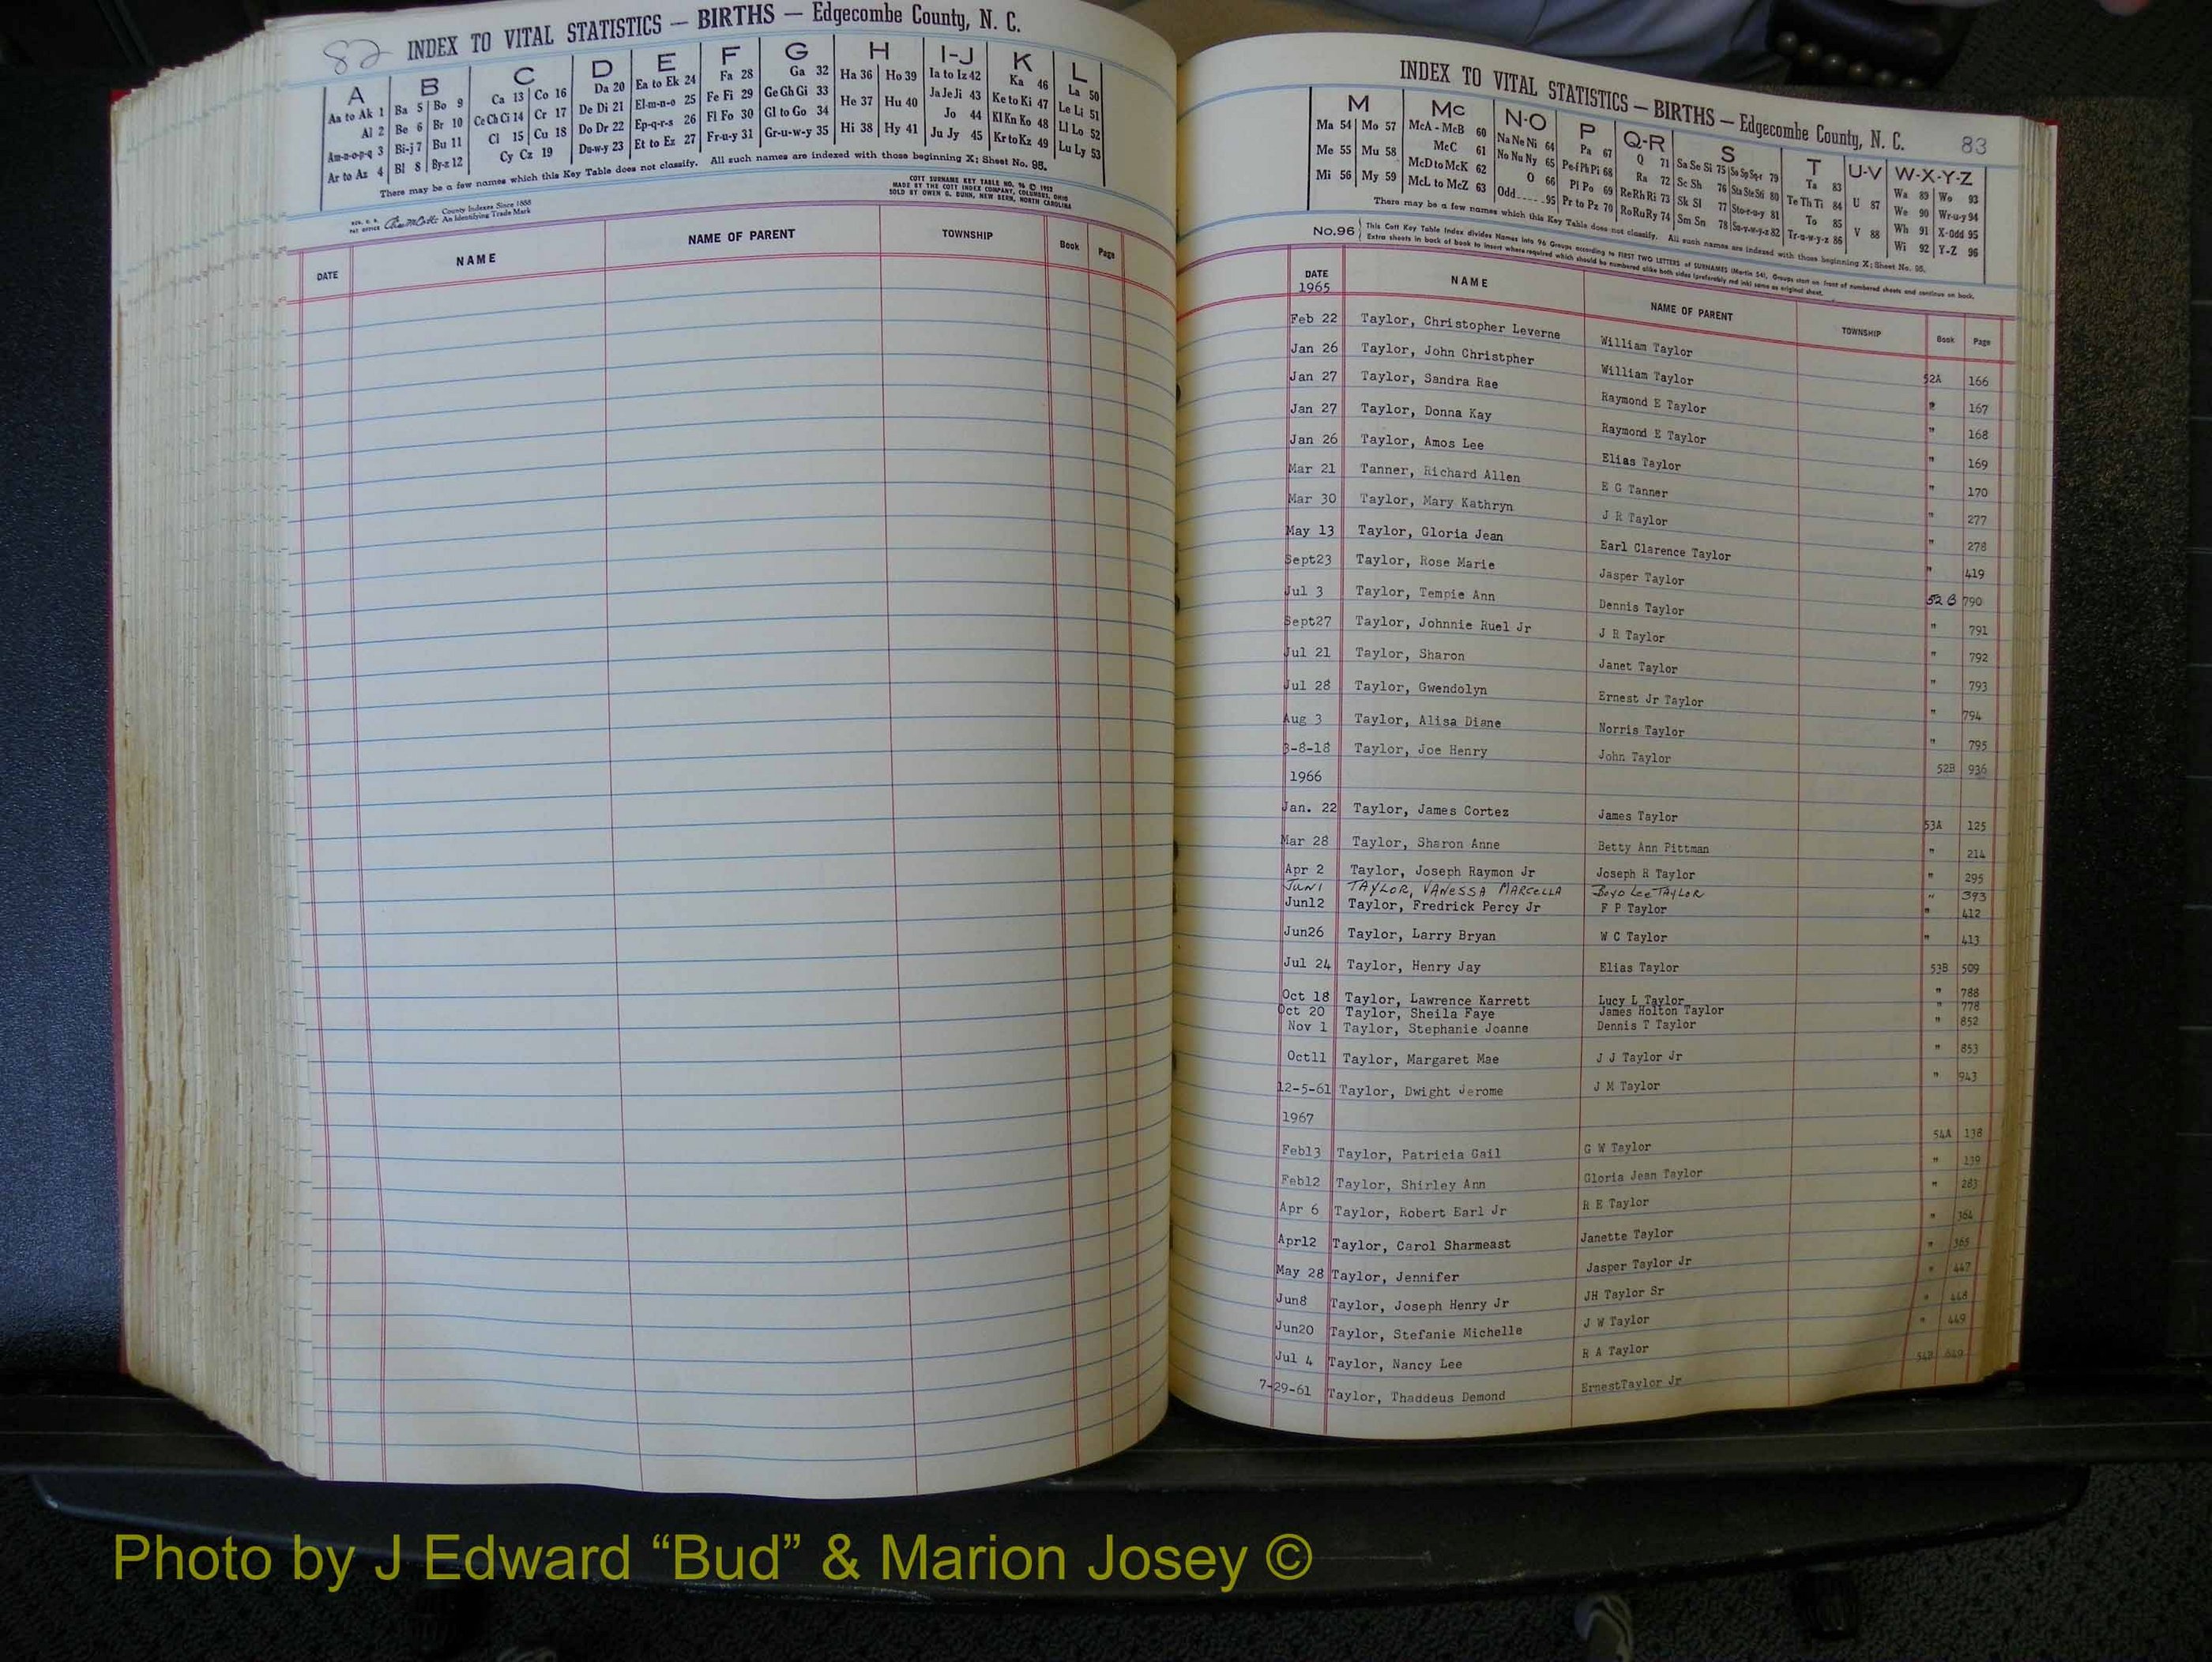 82 INDEX TO VITAL STATISTICS — BIRTHS — Edgecombe County, N. C.
A B C D E F G H I-J K L
Aa to Ak 1 Ba 5 Bo 9 Ca 13 Co 16 Da 20 Ea to Ek 24 Fa 28 Ga 32 Ha 36 Ho 39 Ia to Iz 42 Ka 46 La 50
Al 2 Be 6 Br 10 Ce Ch Ci 14 Cr 17 De Di 21 El-m-n-o 25 Fe Fi 29 Ge Gh Gi 33 He 37 Hu 40 Ja Je Ji 43 Ke to Ki 47 Le Li 51
Am-n-o-p-q 3 Bi-j 7 Bu 11 Cl 15 Cu 18 Do Dr 22 Ep-q-r-s 26 Fl Fo 30 Gl to Go 34 Hi 38 Hy 41 Jo 44 Kl Kn Ko 48 Ll Lo 52
Ar to Az 4 Bl 8 By-z 12 Cy Cz 19 Du-w-y 23 Et to Ez 27 Fr-u-y 31 Gr-u-w-y 35 Ju Jy 45 Kr to Kz 49 Lu Ly 53
There may be a few names which this Key Table does not classify. All such names are indexed with those beginning X; Sheet No. 95.
County Indexes Since 1888
An Identifying Trade Mark
COTT SURNAME KEY TABLE NO. 96 © 1952
MADE BY THE COTT INDEX COMPANY, COLUMBUS, OHIO
SOLD BY OWEN G. DUNN, NEW BERN, NORTH CAROLINA
DATE NAME NAME OF PARENT TOWNSHIP Book Page
INDEX TO VITAL STATISTICS — BIRTHS — Edgecombe County, N. C. 83
M Mc N-O P Q-R S T U-V W-X-Y-Z
Ma 54 Mo 57 McA - McB 60 Na Ne Ni 64 Pa 67 Q 71 Sa Se Si 75 Sa Sp Sq-r 79 Ta 83 U 87 Wa 89 Wo 93
Me 55 Mu 58 McC 61 No Nu Ny 65 Pe-f Ph Pi 68 Ra 72 Sc Sh 76 Sta Ste Sti 80 Te Th Ti 84 V 88 We 90 Wr-u-y 94
Mi 56 My 59 McD to McK 62 O 66 Pl Po 69 Re Rh Ri 73 Sk Sl 77 Sto-r-u-y 81 To 85 Wh 91 X-Odd 95
McL to McZ 63 Odd 95 Pr to Pz 70 Ro Ru Ry 74 Sm Sn 78 Su-v-w-y-z 82 Tr-u-w-y-z 86 Wi 92 Y-Z 96
There may be a few names which this Key Table does not classify. All such names are indexed with those beginning X; Sheet No. 95.
No.96 This Cott Key Table Index divides Names into 96 Groups according to FIRST TWO LETTERS of SURNAMES (Martin 54). Groups start on front of numbered sheets and continue on back.
Extra sheets in back of book to insert where required which should be numbered alike both sides (preferably red ink) same as original sheet.
DATE NAME NAME OF PARENT TOWNSHIP Book Page
1965
Feb 22 Taylor, Christopher Leverne William Taylor 52A 166
Jan 26 Taylor, John Christpher William Taylor " 167
Jan 27 Taylor, Sandra Rae Raymond E Taylor " 168
Jan 27 Taylor, Donna Kay Raymond E Taylor " 169
Jan 26 Taylor, Amos Lee Elias Taylor " 170
Mar 21 Tanner, Richard Allen E G Tanner " 277
Mar 30 Taylor, Mary Kathryn J R Taylor " 278
May 13 Taylor, Gloria Jean Earl Clarence Taylor " 419
Sept23 Taylor, Rose Marie Jasper Taylor 52 B 790
Jul 3 Taylor, Tempie Ann Dennis Taylor " 791
Sept27 Taylor, Johnnie Ruel Jr J R Taylor " 792
Jul 21 Taylor, Sharon Janet Taylor " 793
Jul 28 Taylor, Gwendolyn Ernest Jr Taylor " 794
Aug 3 Taylor, Alisa Diane Norris Taylor " 795
3-8-18 Taylor, Joe Henry John Taylor 52B 936
1966
Jan. 22 Taylor, James Cortez James Taylor 53A 125
Mar 28 Taylor, Sharon Anne Betty Ann Pittman " 214
Apr 2 Taylor, Joseph Raymon Jr Joseph R Taylor " 295
JUN 1 TAYLOR, VANESSA MARCELLA Boyd Lee TAYLOR " 393
Jun12 Taylor, Fredrick Percy Jr F P Taylor " 412
Jun26 Taylor, Larry Bryan W C Taylor " 413
Jul 24 Taylor, Henry Jay Elias Taylor 53B 509
Oct 18 Taylor, Lawrence Karrett Lucy L Taylor " 788
Oct 20 Taylor, Sheila Faye James Holton Taylor " 778
Nov 1 Taylor, Stephanie Joanne Dennis T Taylor " 852
Oct11 Taylor, Margaret Mae J J Taylor Jr " 853
12-5-61 Taylor, Dwight Jerome J M Taylor " 943
1967
Feb13 Taylor, Patricia Gail G W Taylor 54A 138
Feb12 Taylor, Shirley Ann Gloria Jean Taylor " 139
Apr 6 Taylor, Robert Earl Jr R E Taylor " 283
Apr12 Taylor, Carol Sharmeast Janette Taylor " 364
May 28 Taylor, Jennifer Jasper Taylor Jr " 365
Jun8 Taylor, Joseph Henry Jr JH Taylor Sr " 447
Jun20 Taylor, Stefanie Michelle J W Taylor " 448
Jul 4 Taylor, Nancy Lee R A Taylor " 449
7-29-61 Taylor, Thaddeus Demond ErnestTaylor Jr 54B
Photo by J Edward “Bud” & Marion Josey ©